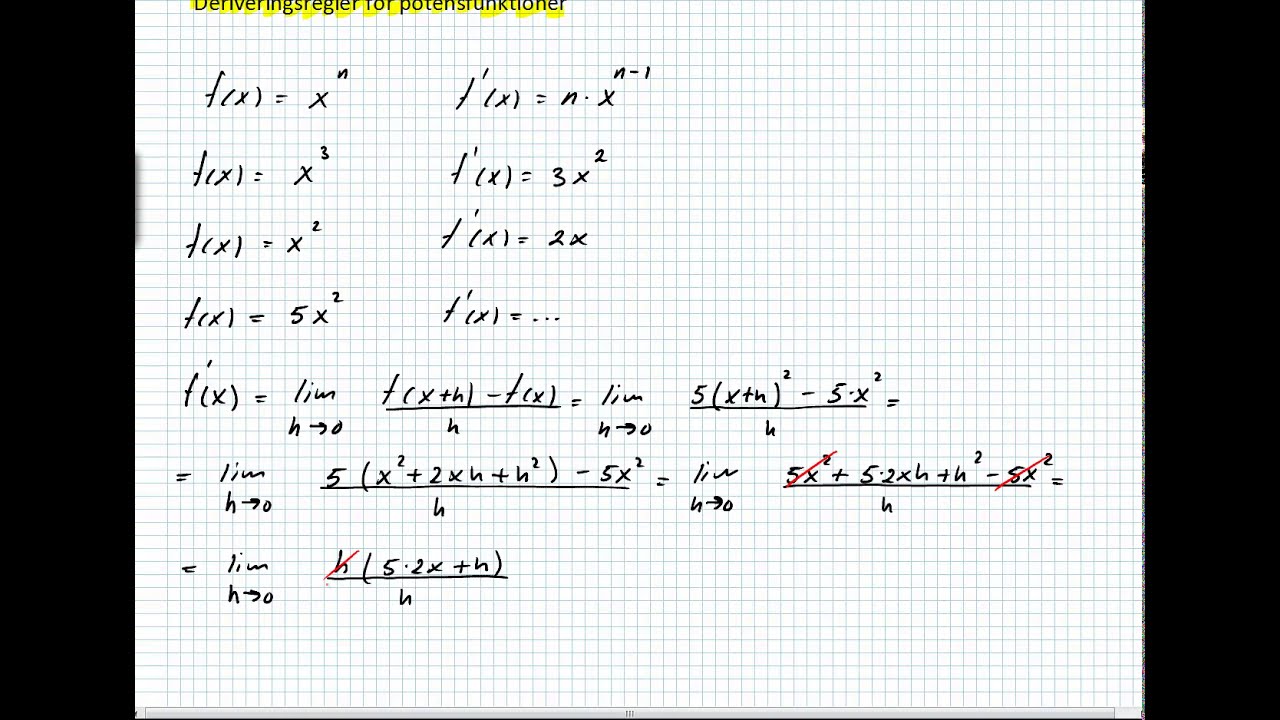 Deriveringsregler för potensfunktioner
f(x) = xⁿ f'(x) = n · xⁿ⁻¹
f(x) = x³ f'(x) = 3x²
f(x) = x² f'(x) = 2x
f(x) = 5x² f'(x) = ...
f'(x) = lim h→0 (f(x+h) - f(x))/h = lim h→0 (5(x+h)² - 5·x²)/h =
= lim h→0 (5(x²+2xh+h²) - 5x²)/h = lim h→0 (5x² + 5·2xh + h² - 5x²)/h =
= lim h→0 h(5·2x + h)/h